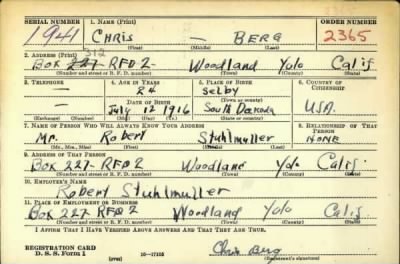 SERIAL NUMBER 1. NAME (Print) ORDER NUMBER
1941 CHRIS — BERG 2365
(First) (Middle) (Last)
2. ADDRESS (Print) 312
BOX 227- RFD 2- Woodland Yolo Calif
(Number and street or R. F. D. number) (Town) (County) (State)
3. TELEPHONE 4. AGE IN YEARS 5. PLACE OF BIRTH 6. COUNTRY OF CITIZENSHIP
— 24 Selby
(Town or county)
DATE OF BIRTH
July 12 1916 South Dakoda U.S.A.
(Exchange) (Number) (Mo.) (Day) (Yr.) (State or country)
7. NAME OF PERSON WHO WILL ALWAYS KNOW YOUR ADDRESS 8. RELATIONSHIP OF THAT PERSON
Mr. Robert Stuhlmuller NONE
(Mr., Mrs., Miss) (First) (Middle) (Last)
9. ADDRESS OF THAT PERSON
BOX 227- RFD 2 Woodland Yolo Calif.
(Number and street or R. F. D. number) (Town) (County) (State)
10. EMPLOYER'S NAME
Robert Stuhlmuller
11. PLACE OF EMPLOYMENT OR BUSINESS
BOX 227 RFD 2 Woodland Yolo Calif
(Number and street or R. F. D. number) (Town) (County) (State)
I AFFIRM THAT I HAVE VERIFIED ABOVE ANSWERS AND THAT THEY ARE TRUE.
REGISTRATION CARD
D. S. S. Form 1 16—17105 Chris Berg
(over) (Registrant's signature)